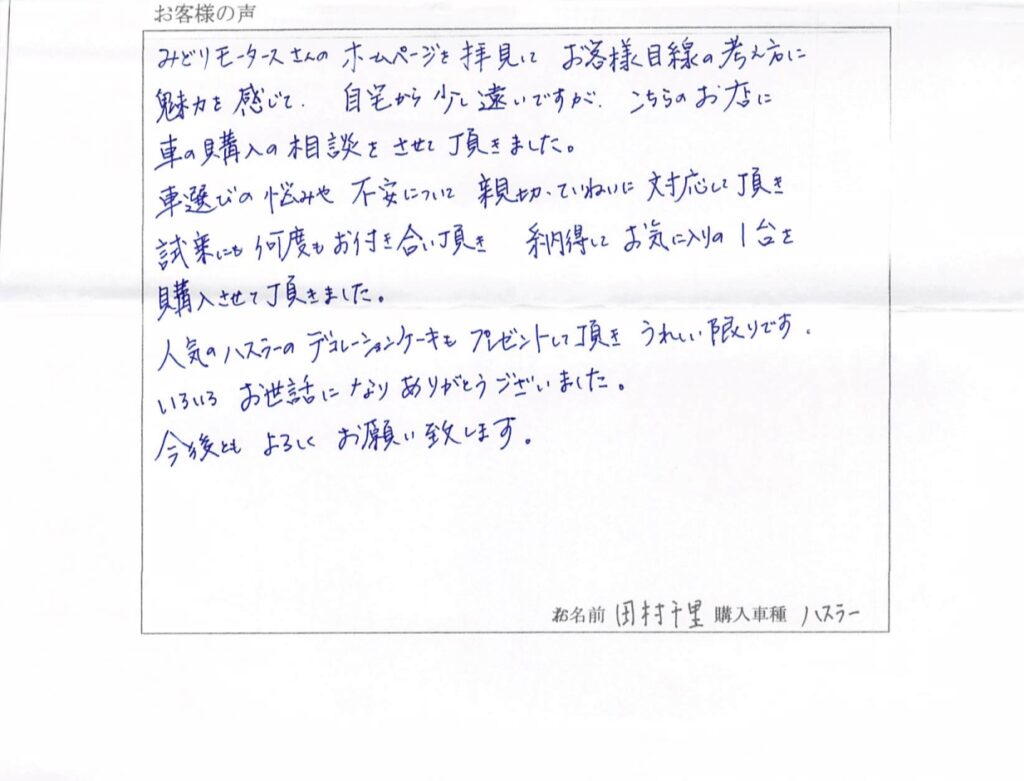 お客様の声
みどりモータースさんの ホームページを 拝見して お客様目線の考え方に
魅力を感じて、自宅から少し遠いですが、こちらのお店に
車の購入の相談をさせて頂きました。
車選びの悩みや 不安について 親切、ていねいに 対応して頂き
試乗にも 何度もお付き合い頂き 納得して お気に入りの1台を
購入させて頂きました。
人気のハスラーの デコレーションケーキも プレゼントして頂き うれしい限りです。
いろいろ お世話になり ありがとうございました。
今後とも よろしく お願い致します。
お名前 田村千里 購入車種 ハスラー